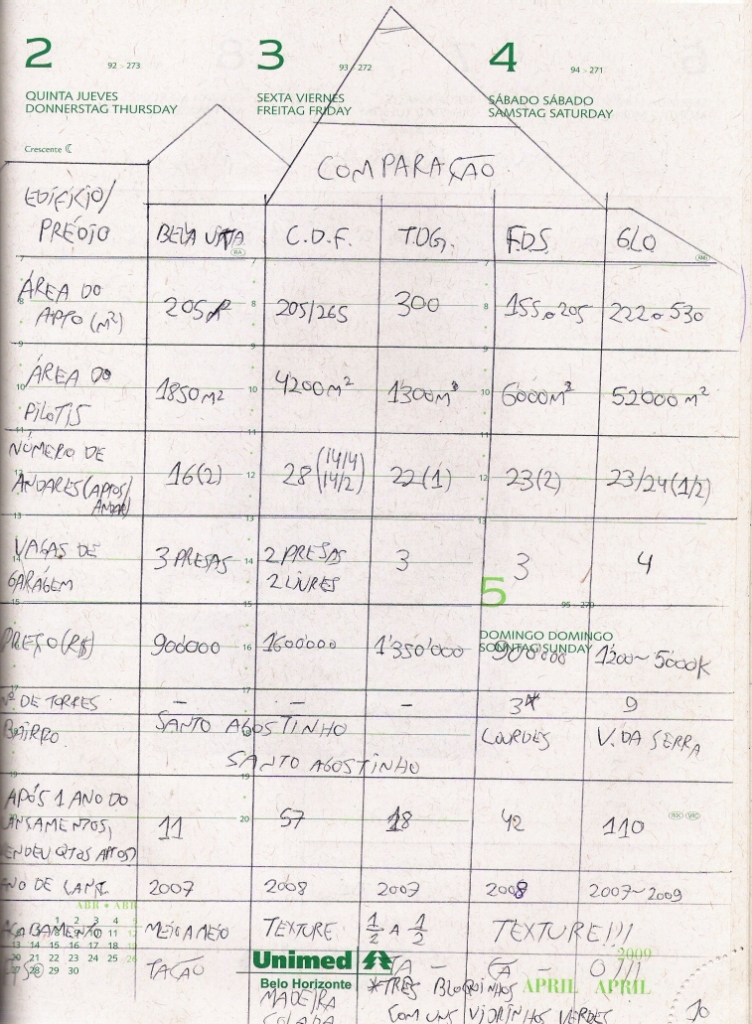 2 92 - 273 3 93 - 272 4 94 - 271
QUINTA JUEVES SEXTA VIERNES SÁBADO SÁBADO
DONNERSTAG THURSDAY FREITAG FRIDAY SAMSTAG SATURDAY
Crescente
COMPARAÇÃO
EDIFÍCIO/
PRÉDIO BELA VISTA C.D.F. T.D.G. F.D.S. GLO
ÁREA DO
APTO (m²) 205 205/265 300 155 a 205 222 a 530
ÁREA DO
PILOTIS 1850m2 4200m² 1300m² 6000m² 52000m²
NÚMERO DE
ANDARES (APTOS/
ANDAR) 16(2) 28 (14/4 14/2) 22(1) 23(2) 23/24(1/2)
VAGAS DE
GARÁGEM 3 PRESAS 2 PRESAS 2 LIVRES 3 3 4
5 95 - 270
DOMINGO DOMINGO
SONNTAG SUNDAY
PREÇO(R$) 900000 1600000 1'350'000 900000 1200~5000K
Nº DE TORRES - - - 3* 9
BAIRRO SANTO AGOSTINHO LOURDES V. DA SERRA
SANTO AGOSTINHO
APÓS 1 ANO DO
LANSAMENTOS,
VENDEU QTOS APTOS? 11 57 18 42 110
ANO DE LANÇ 2007 2008 2007 2008 2007~2009
ABR • ABR
ACABAMENTO MEIO A MEIO TEXTURE 1/2 A 1/2 TEXTURE!!!
1 2 3 4 5
13 14 15 16 17 18
20 21 22 23 24 25
27 28 29 30
TACÃO TA - CA - O!!!
Unimed
Belo Horizonte
2009
APRIL APRIL
*TRÊS BLOQUINHOS
MADEIRA
COLADA COM UNS VIDRINHOS VERDES